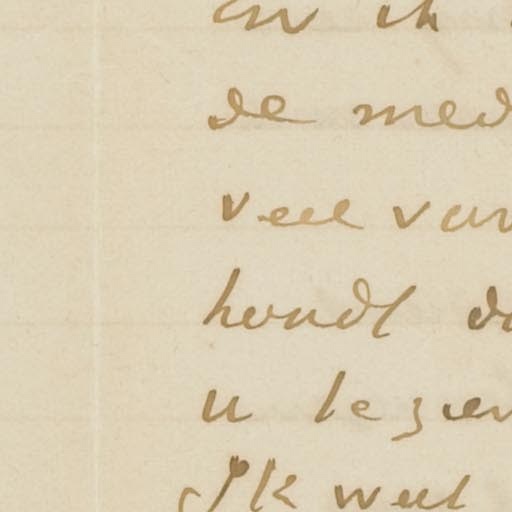 en ik
de med
veel van
houdt da
u te zien
Ik weet